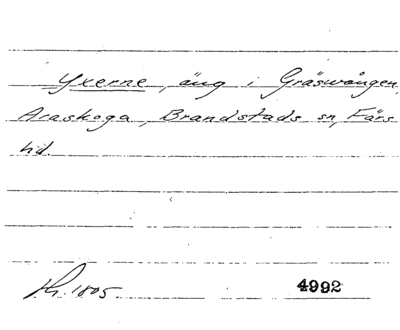 Yxerne, äng i Gräsvången,
Araskoga, Brandstads sn, Färs
hd.
Lh. 1805 4992